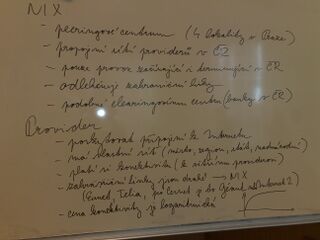 NIX
- peeringové centrum (4 lokality v Praze)
- propojení sítí providerů v ČR
- pouze provoz začínající i terminující v ČR
- odlehčuje zahraniční linky
- podobné clearingovému centru (banky v ČR)
Provider
- poskytovat připojení k Internetu
- má vlastní síť (město, region, stát, nadnárodní)
- platí si konektivitu (k větším providerům)
- zahraniční linky jsou drahé → NIX
(Telia, Géant Internet 2)
- cena konektivity je logaritmická